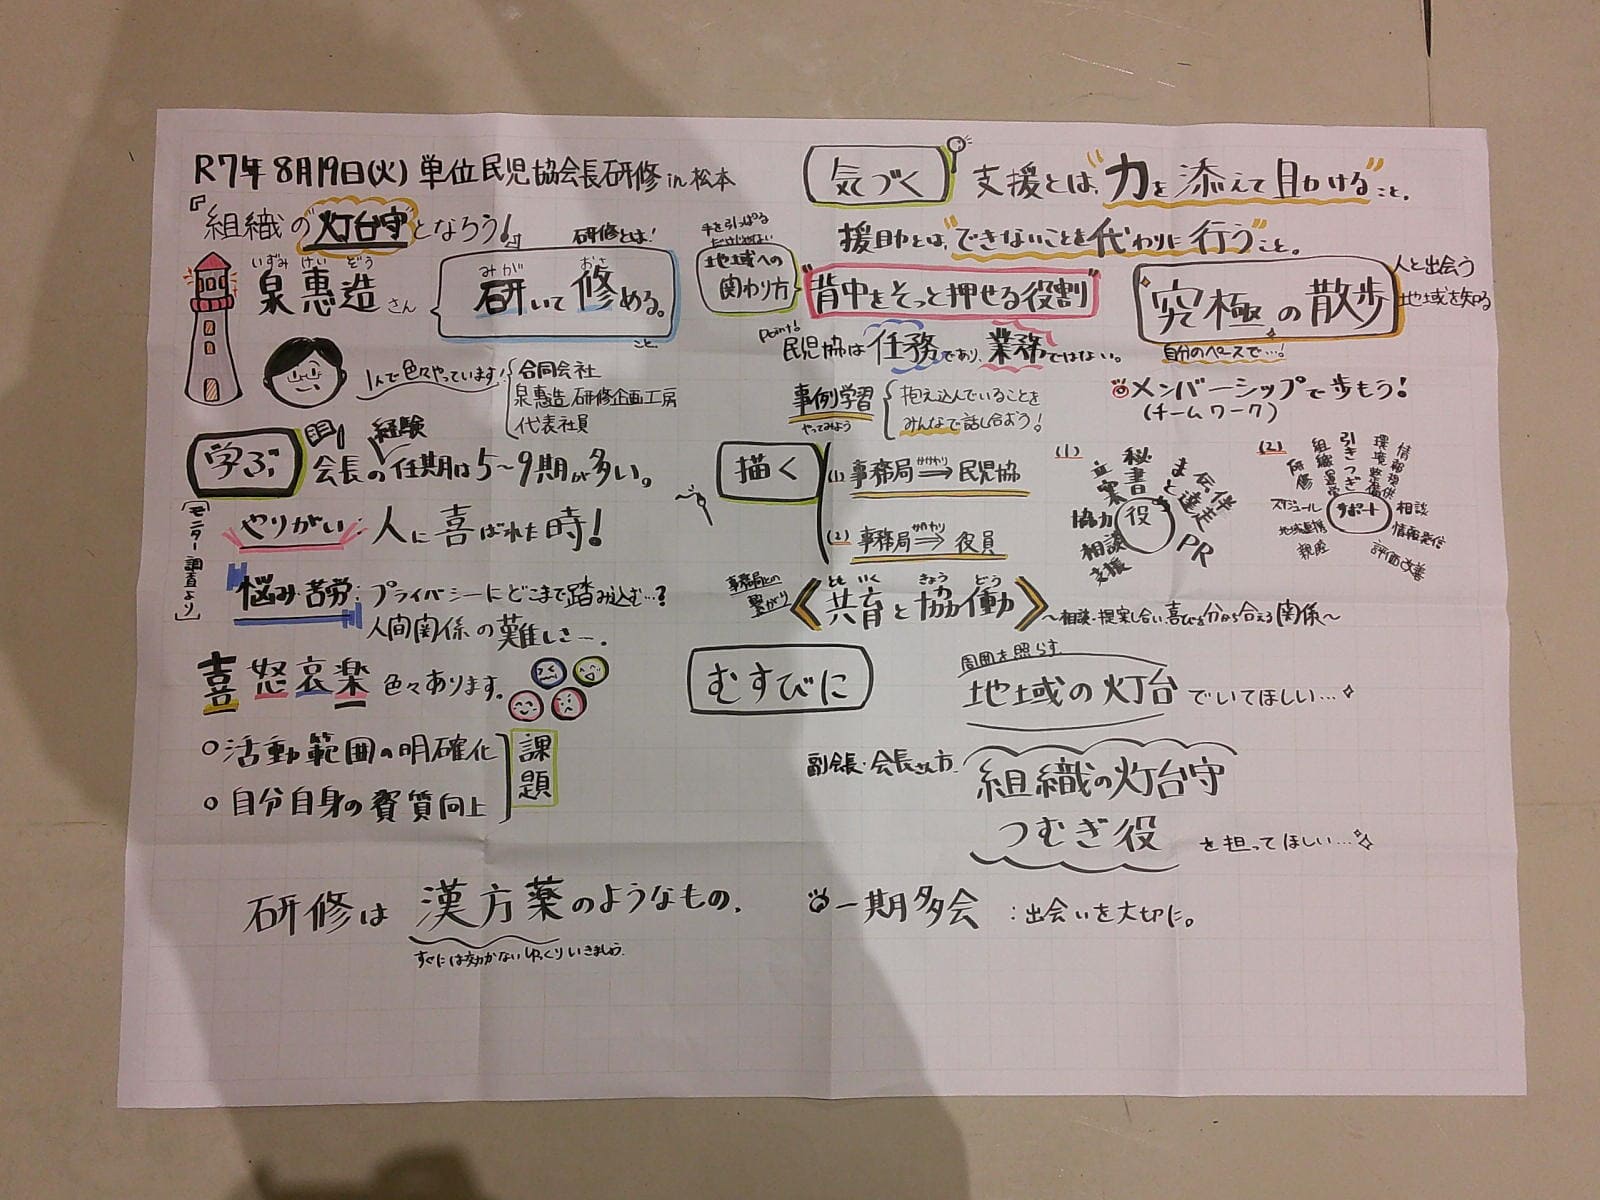 R7年8月19日(火) 単位民児協会長研修 in 松本
『組織の"灯台守"となろう!』
いずみ けい ぞう
泉 惠 造 さん
研修とは!
みが おさ
研いて 修める。
こと
1人で色々やっています!
合同会社
泉惠造 研修企画工房
代表社員
学ぶ
経験
会長の任期は5〜9期が多い。
[モニター調査より]
やりがい: 人に喜ばれた時!
悩み・苦労: プライバシーにどこまで踏み込む…?
人間関係の難しさー。
喜 怒 哀 楽 色々あります。
○活動範囲の明確化
○自分自身の資質向上
課題
研修は 漢方薬のようなもの。
すぐには効かない ゆっくりいきましょう。
気づく
支援とは、"力を添えて助ける"こと。
援助とは、"できないことを代わりに行う"こと。
手を引っぱる
だけじゃない
地域への
関わり方
"背中をそっと押せる役割"
Point!
民児協は 任務であり、業務ではない。
究極の散歩
人と出会う
地域を知る
自分のペースで…!
事例学習
やってみよう
抱え込んでいることを
みんなで話し合おう!
メンバーシップで歩もう!
(チームワーク)
描く
(1) 事務局 ⇒ 民児協
(2) 事務局 ⇒ 役員
(1)
役
立案
秘書
まとめ
伝達
PR
協力
相談
支援
(2)
サポート
研修
組織運営
引きつぎ
環境整備
情報提供
スケジュール
相談
地域連携
情報発信
親睦
評価改善
事務局との
繋がり
とも いく きょう どう
《共育と協働》
〜相談・提案し合い、喜びを分かち合える関係〜
むすびに
周囲を照らす
地域の灯台 でいてほしい…
副会長・会長さん方
組織の灯台守
つむぎ役 を担ってほしい…
一期多会 : 出会いを大切に。